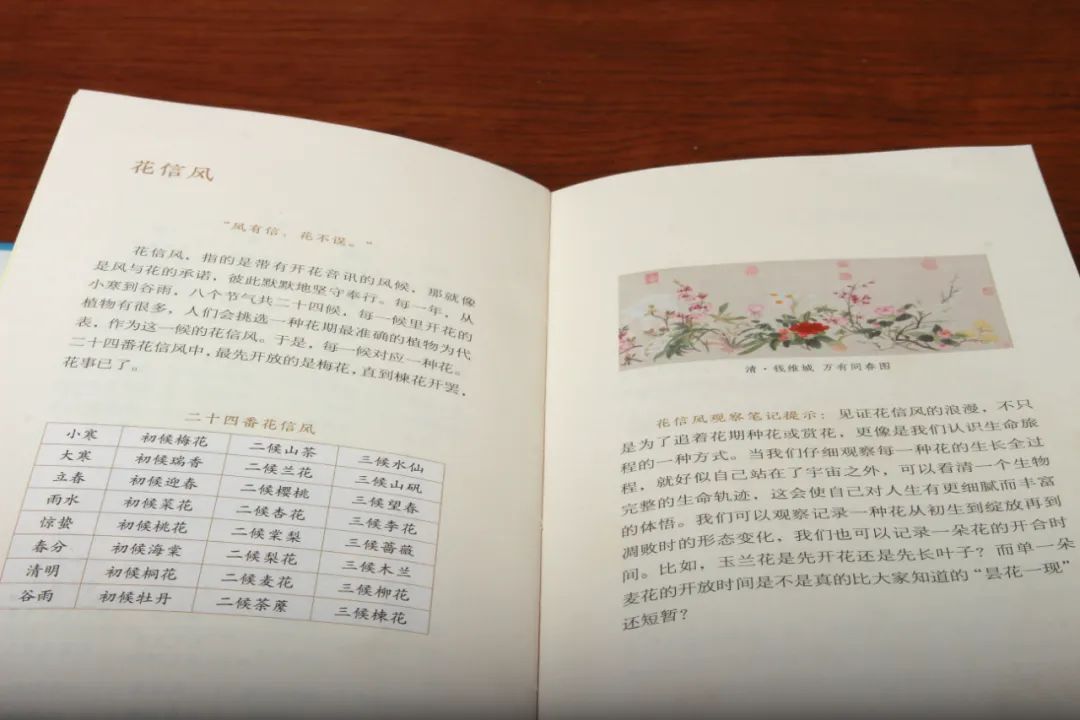 花信风
“风有信，花不误。”
花信风，指的是带有开花音讯的风候，那就像
是风与花的承诺，彼此默默地坚守奉行。每一年，从
小寒到谷雨，八个节气共二十四候，每一候里开花的
植物有很多，人们会挑选一种花期最准确的植物为代
表，作为这一候的花信风。于是，每一候对应一种花。
二十四番花信风中，最先开放的是梅花，直到楝花开罢，
花事已了。
二十四番花信风
小寒 初候梅花 二候山茶 三候水仙
大寒 初候瑞香 二候兰花 三候山矾
立春 初候迎春 二候樱桃 三候望春
雨水 初候菜花 二候杏花 三候李花
惊蛰 初候桃花 二候棠梨 三候蔷薇
春分 初候海棠 二候梨花 三候木兰
清明 初候桐花 二候麦花 三候柳花
谷雨 初候牡丹 二候荼蘼 三候楝花
清·钱维城 万有同春图
花信风观察笔记提示：见证花信风的浪漫，不只
是为了追着花期种花或赏花，更像是我们认识生命旅
程的一种方式。当我们仔细观察每一种花的生长全过
程，就好似自己站在了宇宙之外，可以看清一个生物
完整的生命轨迹，这会使自己对人生有更细腻而丰富
的体悟。我们可以观察记录一种花从初生到绽放再到
凋败时的形态变化，我们也可以记录一朵花的开合时
间。比如，玉兰花是先开花还是先长叶子？而单一朵
麦花的开放时间是不是真的比大家知道的“昙花一现”
还短暂？